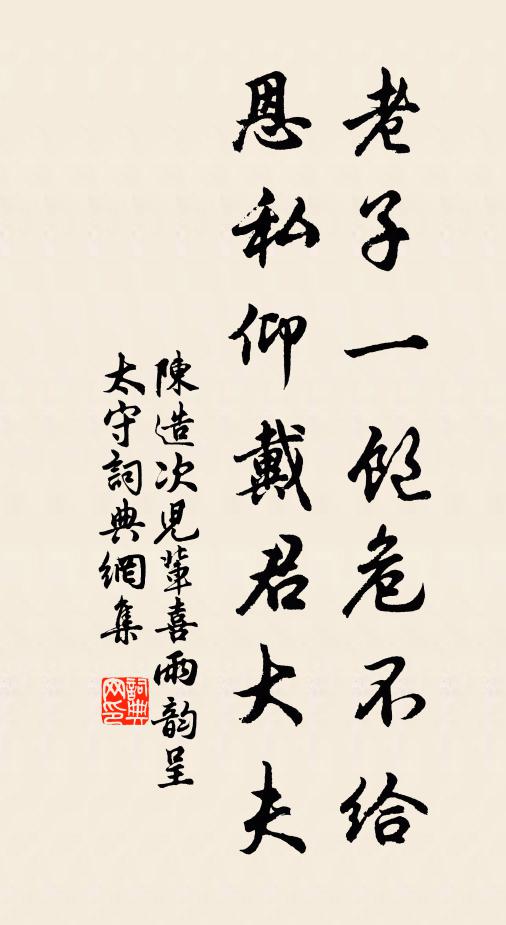 老子一飽危不给
恩私仰戴君大夫
陳造次児輩喜雨韵呈
太守詞典網集
詞典
网印